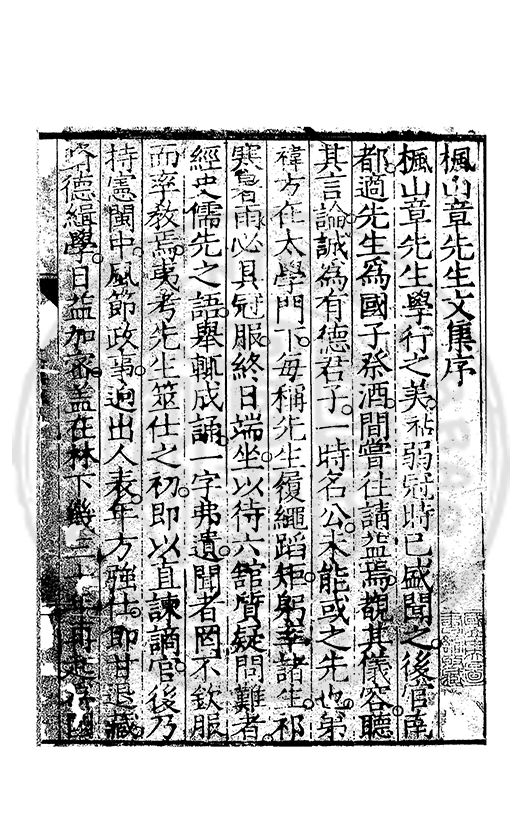 楓山章先生文集序
楓山章先生學行之美弱冠時已盛聞之後官南
都適先生爲國子祭酒間嘗往請益焉覩其儀容聽
其言論誠爲有德君子一時名公未能或之先也弟
禕方在太學門下每稱先生履繩蹈矩躬率諸生祁
寒暑雨必具冠服終日端坐以待六舘質疑問難者
經史儒先之語舉輒成誦一字弗遺聞者罔不欽服
而率教焉夷考先生筮仕之初即以直諫謫官後乃
持憲閩中風節政事逈出人表年方強仕即甘退藏
德緝學日益加密蓋在林下幾二十年